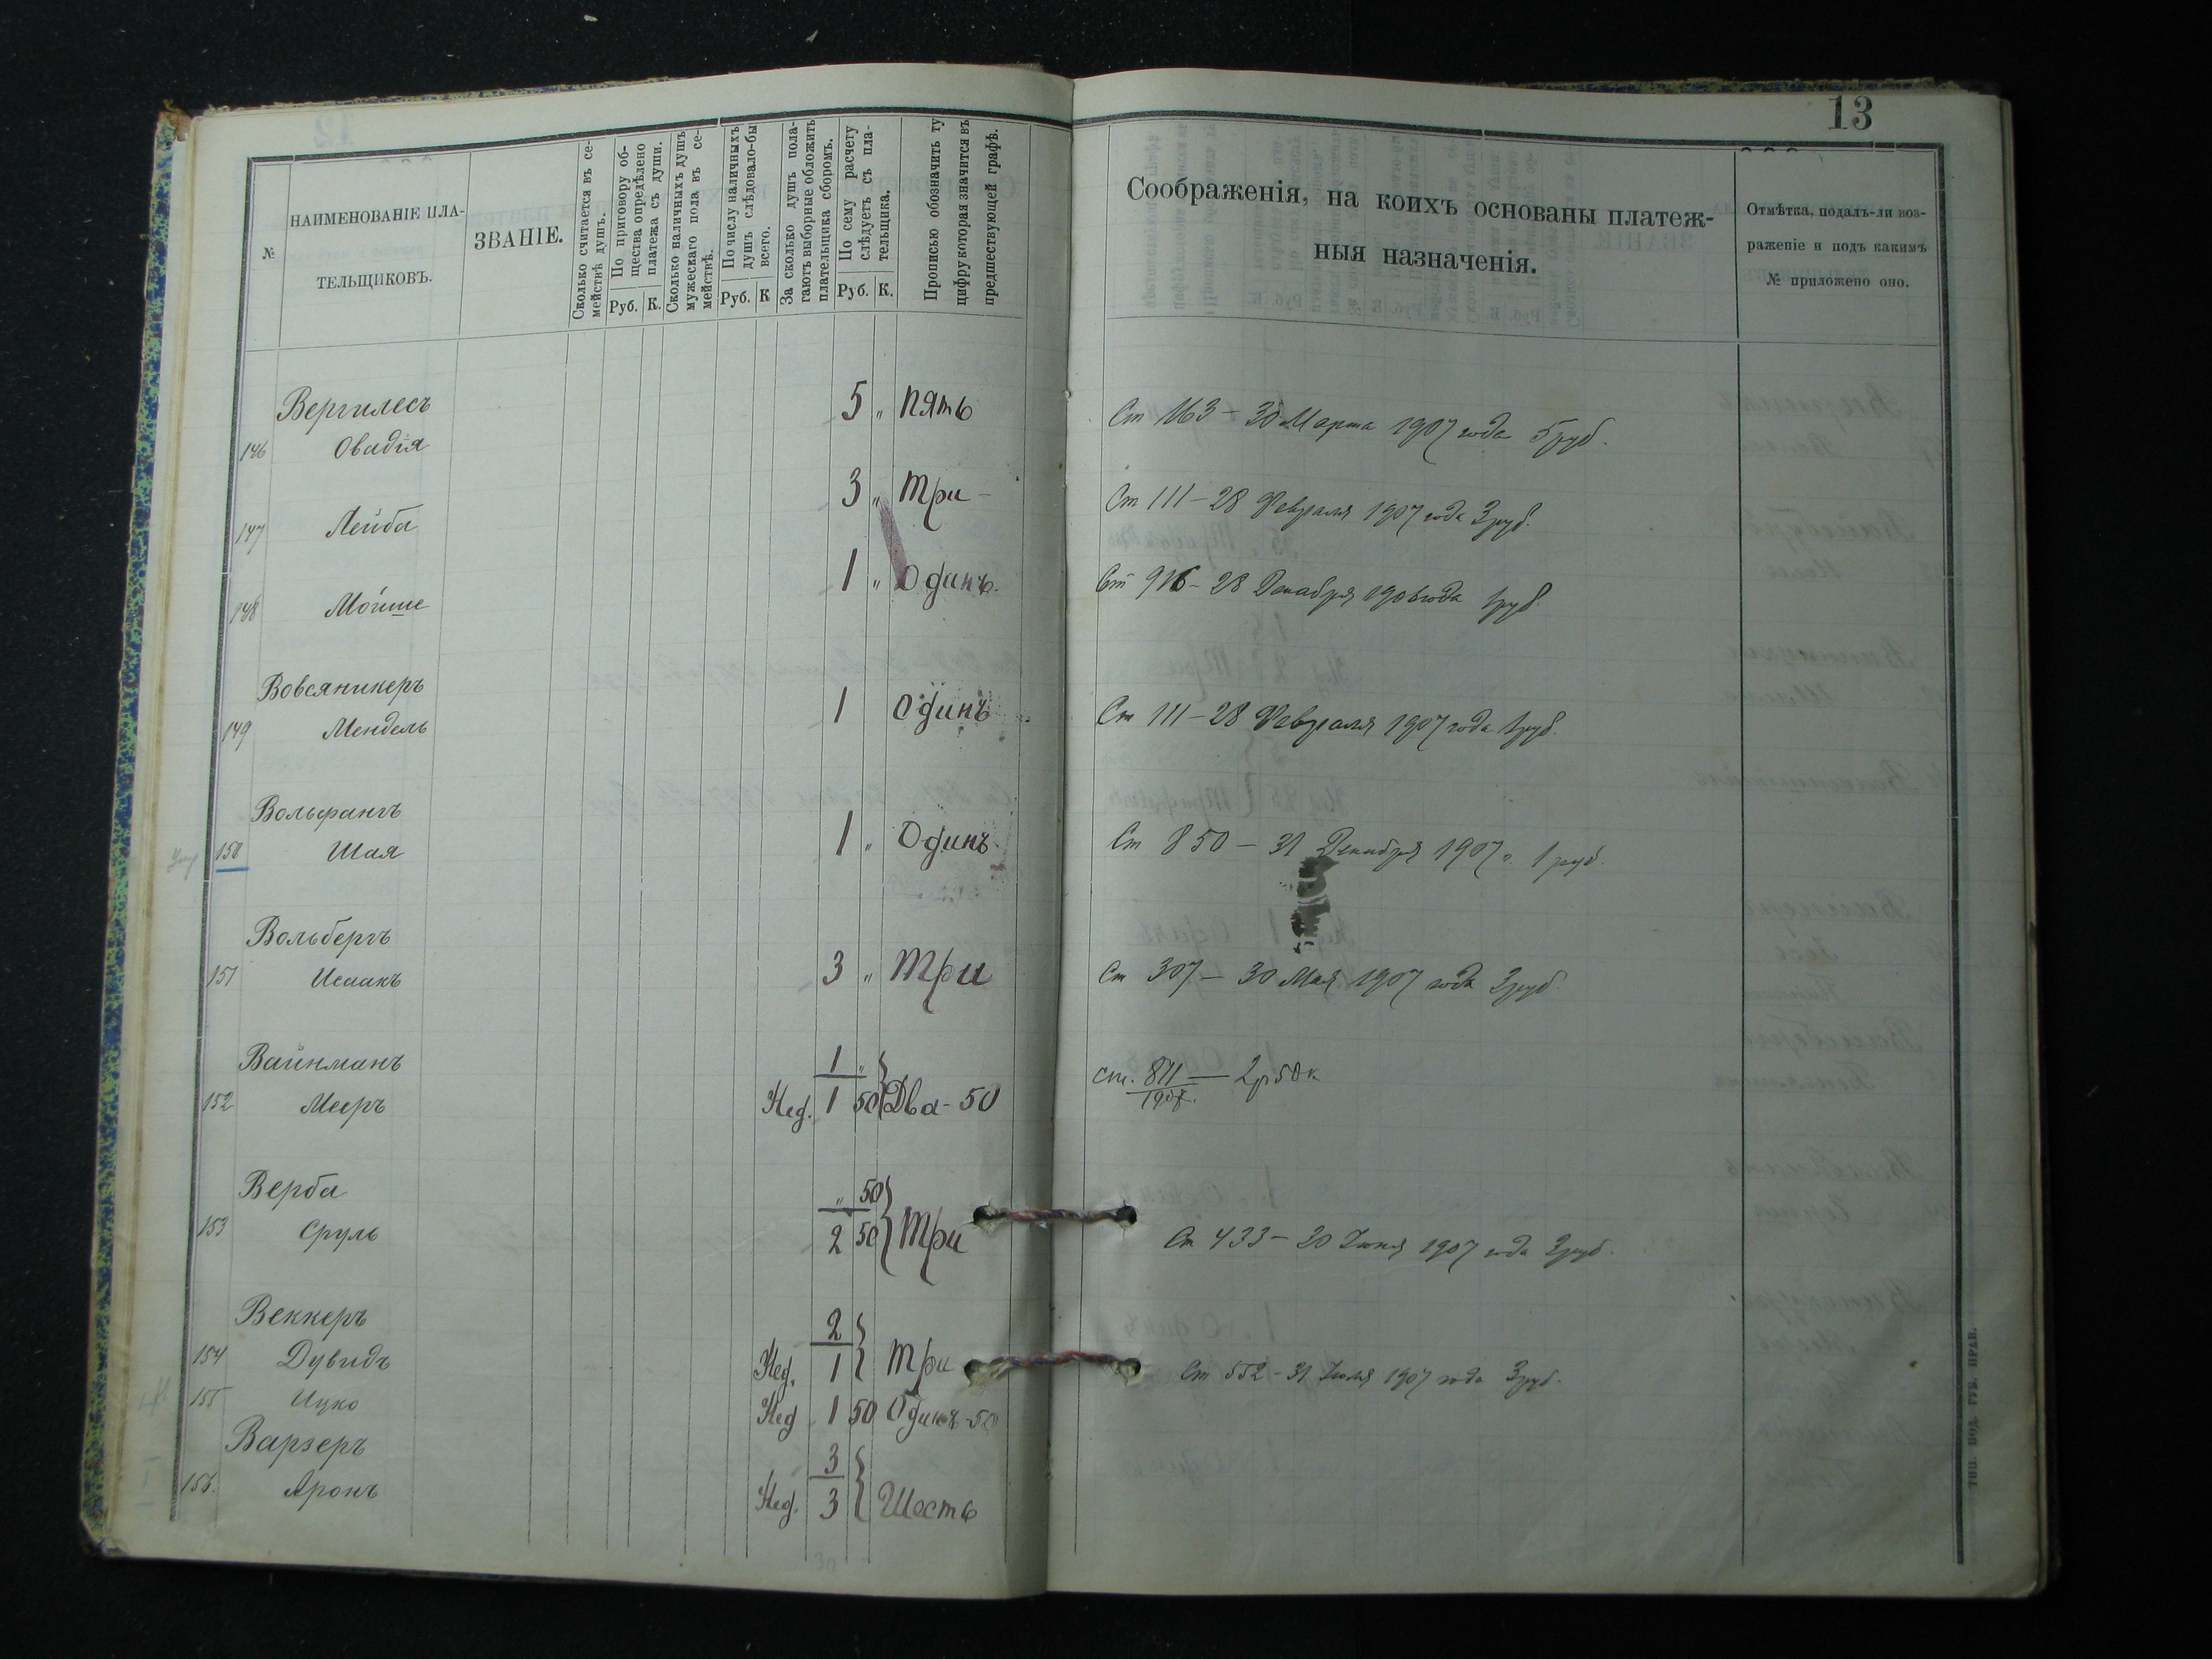 13
№
НАИМЕНОВАНІЕ ПЛА-
ТЕЛЬЩИКОВЪ.
ЗВАНІЕ.
Сколько считается въ се-
мействѣ душъ.
По приговору об-
щества опредѣлено
платежа съ души.
Руб. К.
Сколько наличныхъ душъ
мужескаго пола въ се-
мействѣ.
По числу наличныхъ
душъ слѣдовало-бы
всего.
Руб. К
За сколько душъ пола-
гаютъ выборные обложить
плательщика сборомъ.
По сему расчету
слѣдуетъ съ пла-
тельщика.
Руб. К.
Прописью обозначить ту
цифру которая значится въ
предшествующей графѣ.
Соображенія, на коихъ основаны платеж-
ныя назначенія.
Отмѣтка, подалъ-ли воз-
раженіе и подъ какимъ
№ приложено оно.
Вергилесъ
146 Овадія 5 „ Пять Ст 163 - 30 Марта 1907 года 5 руб.
147 Лейба 3 „ Три - Ст 111 - 28 Февраля 1907 года 3 руб.
148 Мойше 1 „ Одинъ. Ст 916 - 28 Декабря 1906 года 1 руб.
Вовсяникеръ
149 Мендель 1 Одинъ Ст 111 - 28 Февраля 1907 года 1 руб.
Вольфангъ
150 Шая 1 „ Одинъ. Ст 850 - 31 Декабря 1907 г. 1 руб.
Вольбергъ
151 Исаакъ 3 „ Три Ст 307 - 30 Мая 1907 года 3 руб.
Вайнманъ 1 „
152 Мееръ Нед. 1 50 Два - 50 ст. 871 — 2 р 50 к
Верба „ 50
153 Сруль 2 50 Три Ст 433 - 20 Іюня 1907 года 3 руб.
Веккеръ 2
154 Дувидъ Нед. 1 Три Ст 552 - 31 Іюля 1907 года 3 руб.
155 Ицко Нед 1 50 Одинъ - 50
Варзеръ 3
156. Аронъ Нед. 3 Шесть
ТИП. ПОД. ГУБ. ПРАВ.